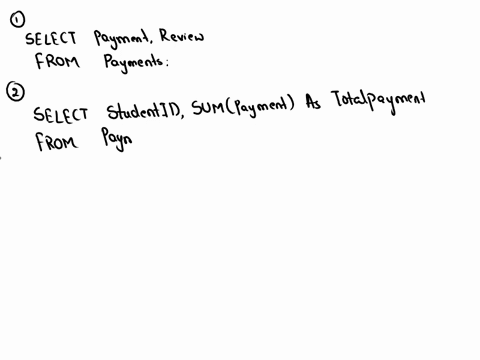 ①
SELECT Payment, Review
FROM Payments;
②
SELECT StudentID, SUM(Payment) As Totalpayment
FROM Payn